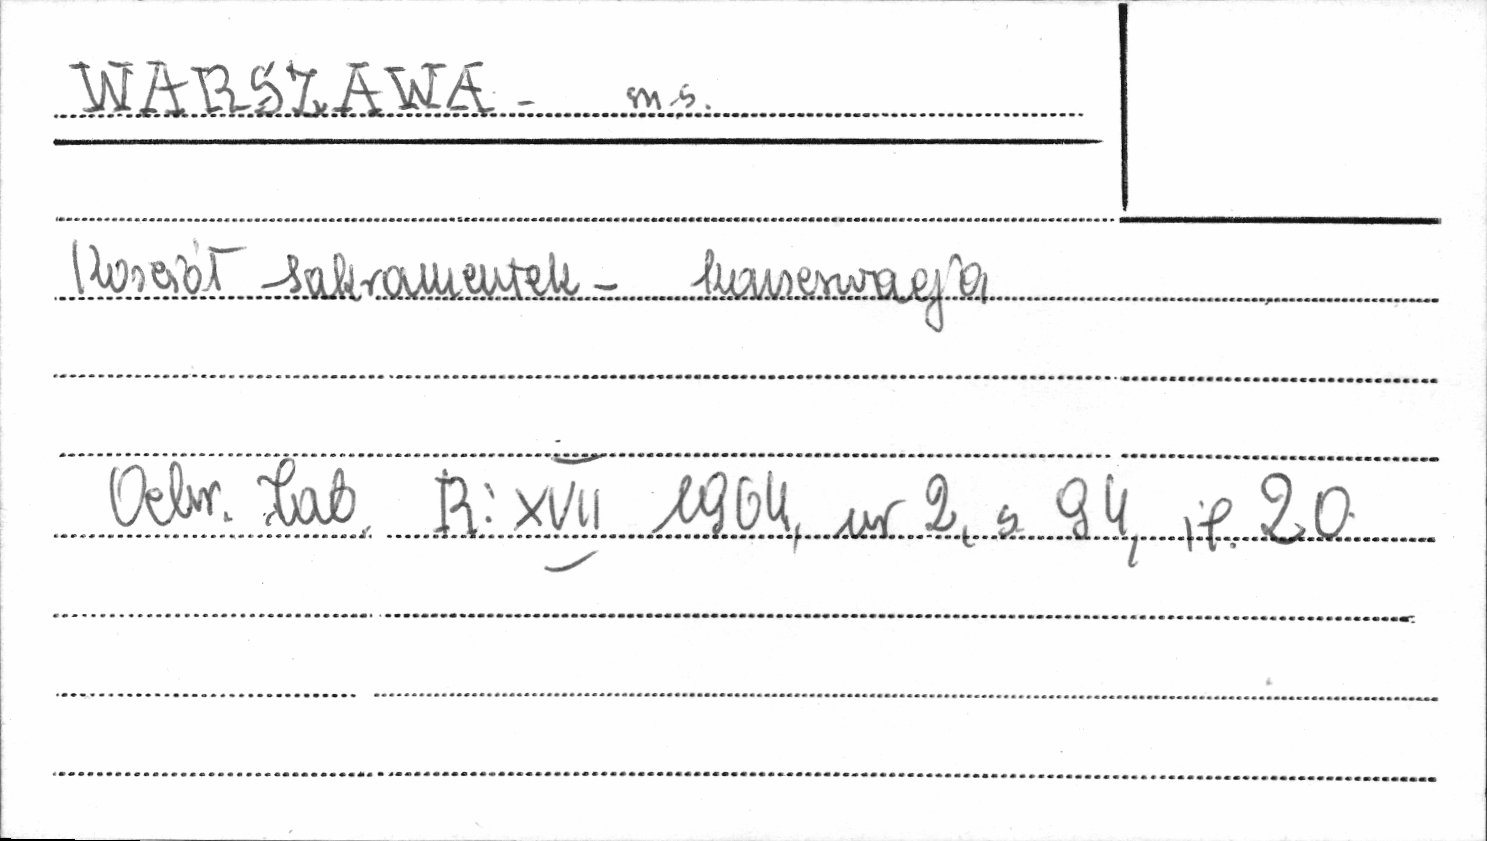 WARSZAWA - m.s.
Kościół sakramentek - konserwacja
Ochr. Zab. R: XVII 1964, nr 2, s 94, il. 20.